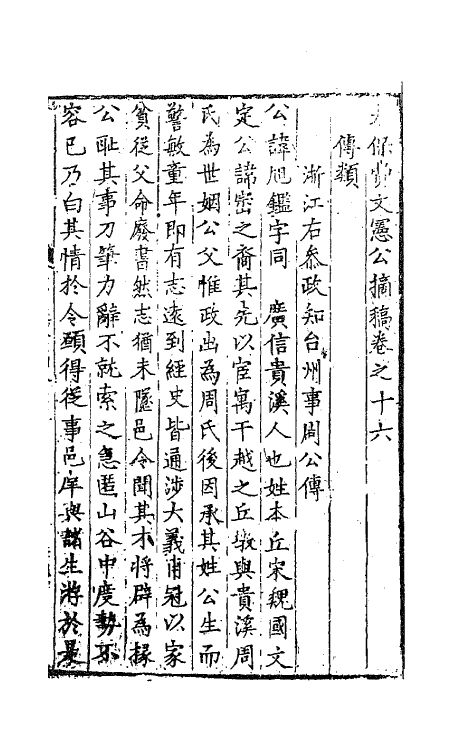 太保費文憲公摘稿卷之十六
傳類
浙江右參政知台州事周公傳
公諱旭鑑字同　廣信貴溪人也姓本丘宋魏國文
定公諱密之裔其先以宦寓干越之丘墩與貴溪周
氏為世姻公父惟政出為周氏後因承其姓公生而
警敏童年即有志遠到經史皆通涉大義甫冠以家
貧從父命廢書然志猶未隳邑令聞其才將辟為掾
公恥其事刀筆力辭不就索之急匿山谷中度勢不
容已乃白其情於令願得從事邑庠與諸生游於是